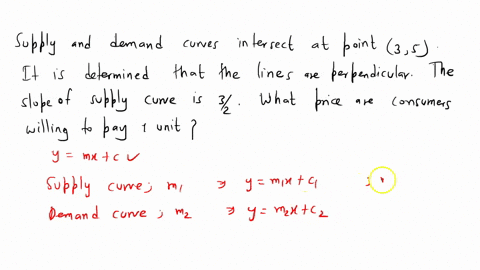 Supply and demand curves intersect at point (3,5).
It is determined that the lines are perpendicular. The
slope of supply curve is 3/2. What price are consumers
willing to pay 1 unit?
y = mx + c ✓
Supply curve; m₁ ⇒ y = m₁x + c₁
Demand curve; m₂ ⇒ y = m₂x + c₂